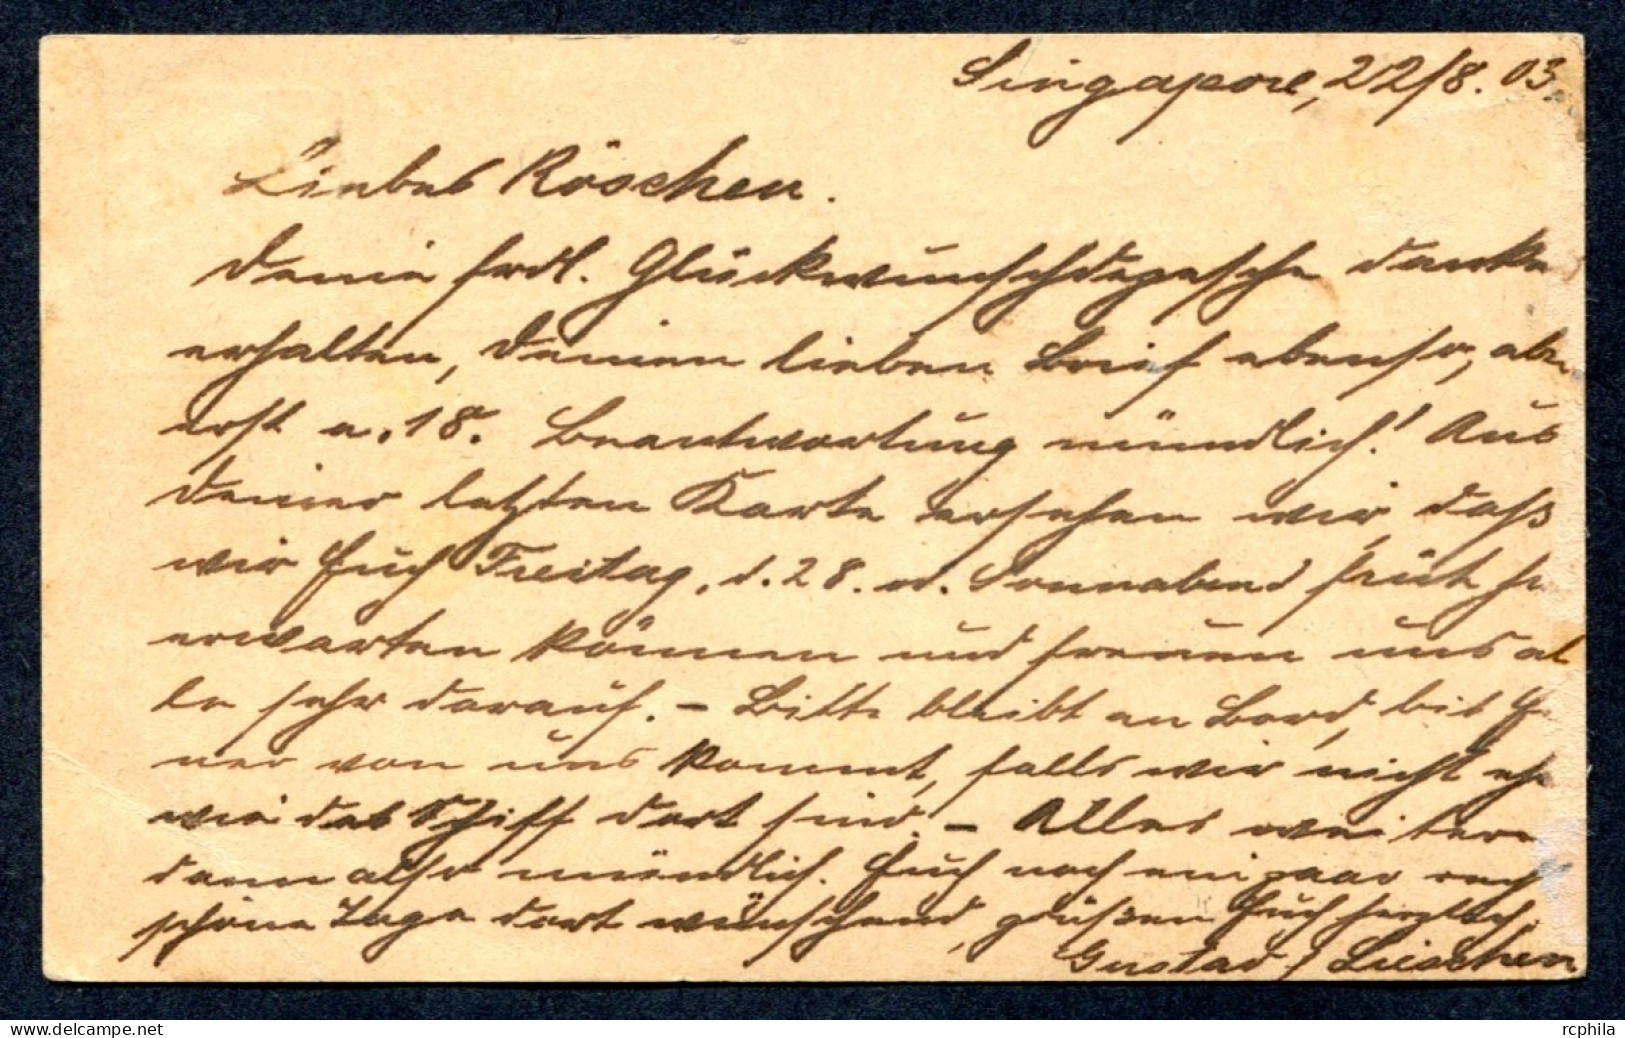 Singapore, 22/8. 03.
Liebes Röschen.
Deine frdl. Glückwunschdepesche danke
erhalten, Deinen lieben Brief ebenso, aber
erst a. 18. Beantwortung mündlich! Aus
Deiner letzten Karte ersehen wir, dass
wir Euch Freitag, d. 28. od. Sonnabend früh hi
erwarten können und freuen uns al
le sehr darauf. – Bitte bleibt an Bord, bis Ei
ner von uns kommt, falls wir nicht eh
wie das Schiff dort sind. – Alles weitere
dann also mündlich. Euch noch ein paar rech
schöne Tage dort wünschend, grüßen Euch herzlich
Gustav / Lieschen
rcphila
delcampe.net